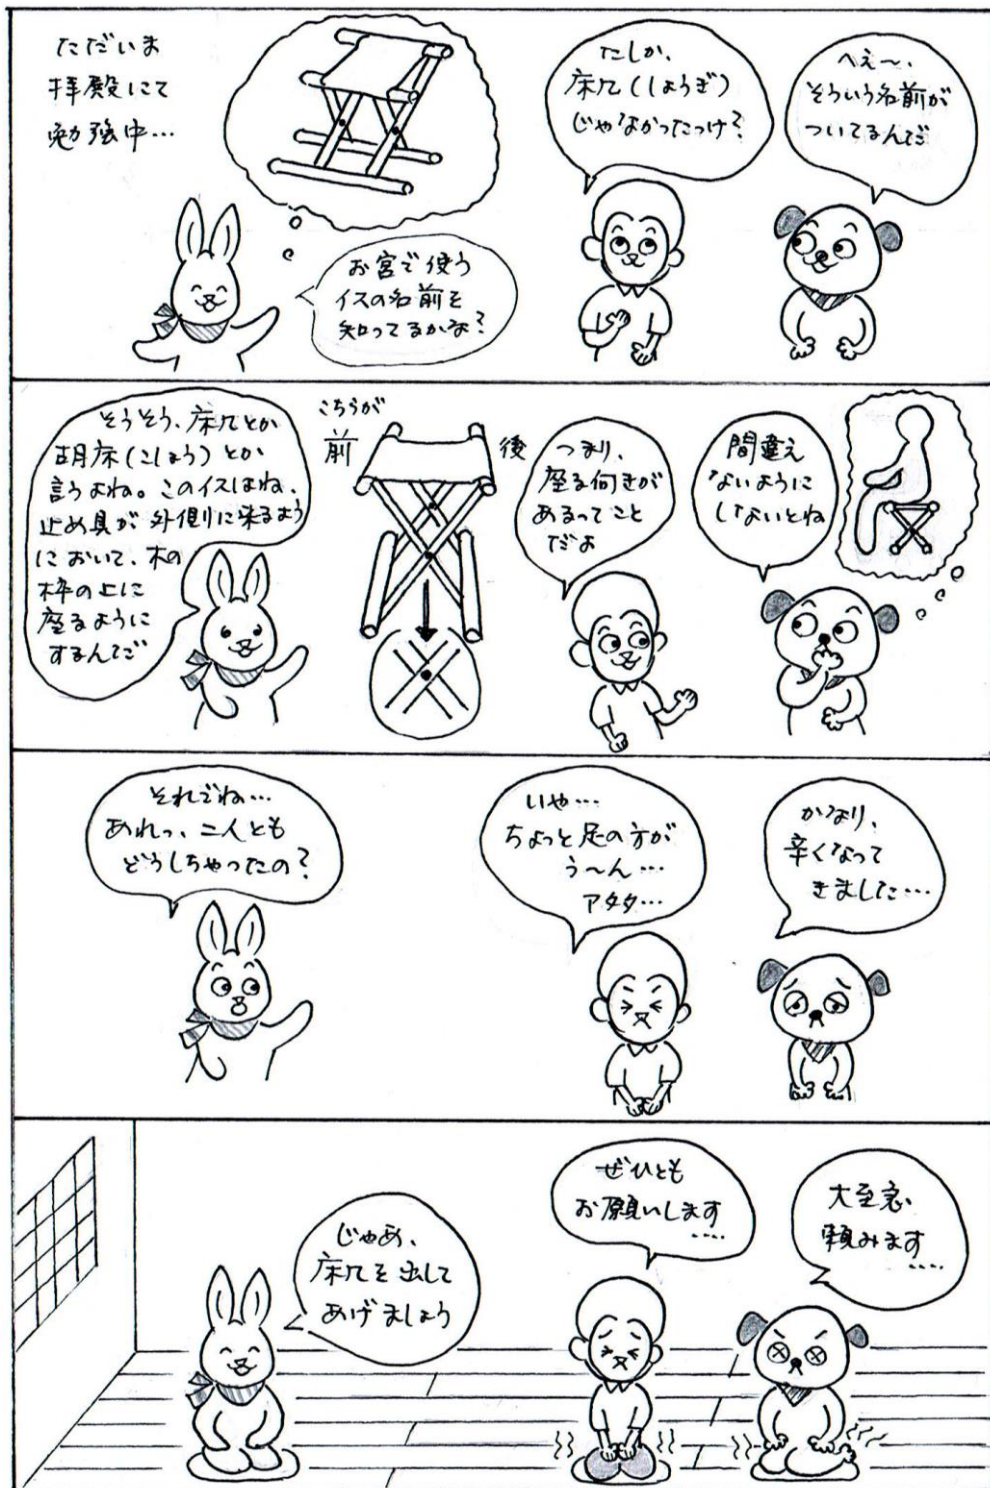 ただいま
拝殿にて
勉強中…
お宮で使う
イスの名前を
知ってるかな？
たしか、
床几(しょうぎ)
じゃなかったっけ？
へぇ〜、
そういう名前が
ついてるんだ
そうそう、床几とか
胡床(こしょう)とか
言うよね。このイスはね、
止め具が外側に来るよう
において、木の
枠の上に
座るように
するんだ
こちらが
前
後
つまり、
座る向きが
あるってこと
だよ
間違え
ないように
しないとね
それでね…
あれっ、二人とも
どうしちゃったの？
いや…
ちょっと足の方が
う〜ん…
アタタ…
かなり、
辛くなって
きました…
じゃあ、
床几を出して
あげましょう
ぜひとも
お願いします
....
大至急
頼みます
....